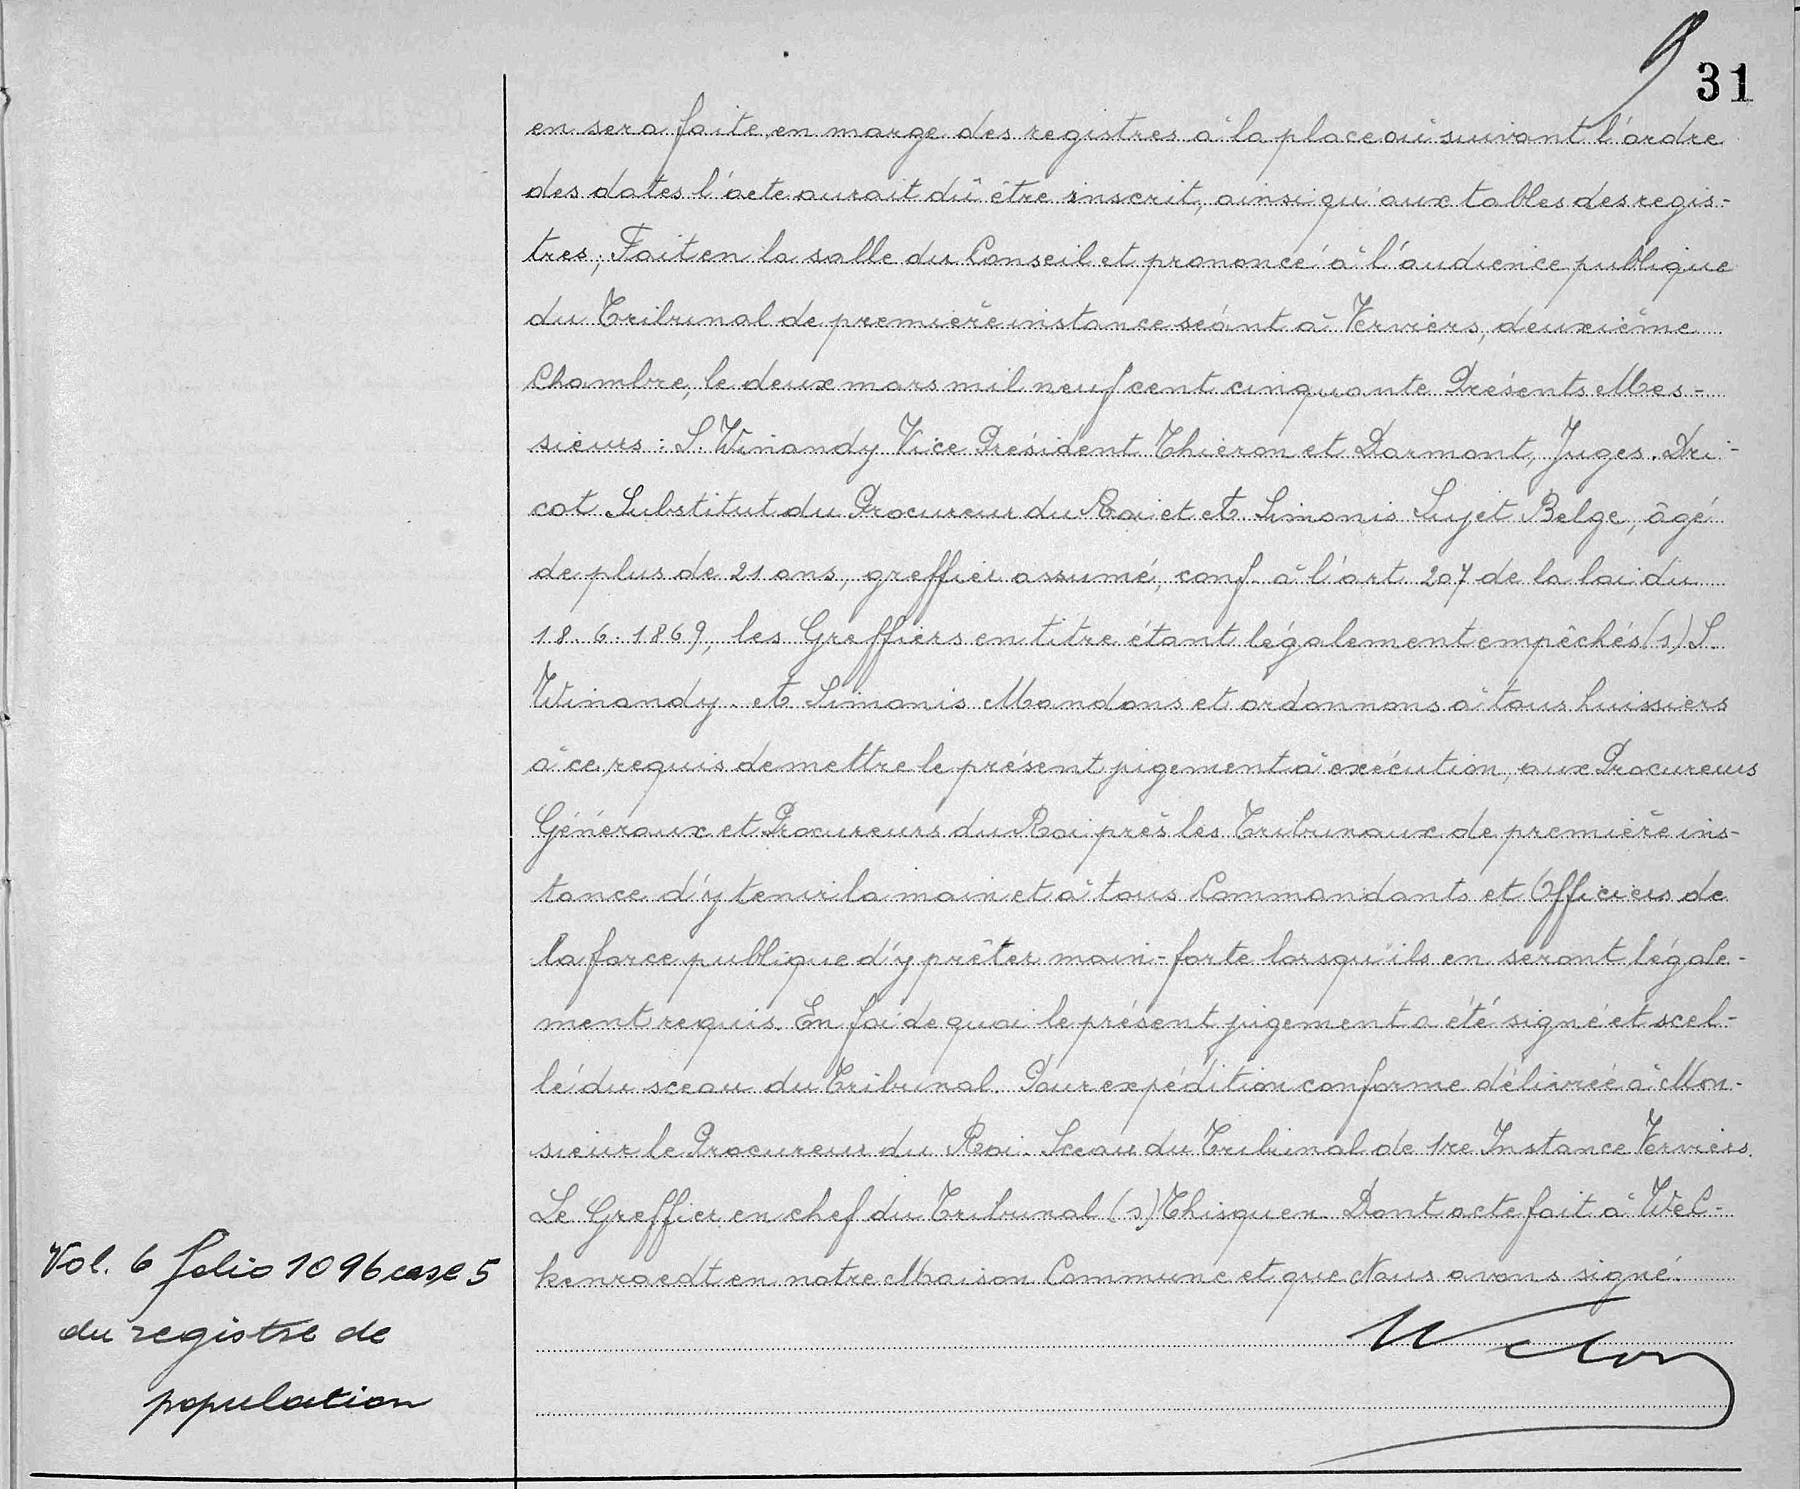 31
en sera faite en marge des registres à la place où suivant l'ordre
des dates l'acte aurait dû être inscrit, ainsi qu'aux tables des regis-
tres; Fait en la salle du Conseil et prononcé à l'audience publique
du Tribunal de première instance séant à Verviers, deuxième
Chambre, le deux mars mil neuf cent cinquante Présents Mes-
sieurs : S. Winandy Vice Président Thiéron et Darmont, Juges. Dri-
cot Substitut du Procureur du Roi et A. Simonis Sujet Belge, âgé
de plus de 21 ans, greffier assumé, conf. à l'art 207 de la loi du
18.6.1869, les Greffiers en titre étant légalement empêchés (s) S.
Winandy. A. Simonis Mandons et ordonnons à tous huissiers
à ce requis de mettre le présent jugement à exécution, aux Procureurs
Généraux et Procureurs du Roi près les Tribunaux de première ins-
tance d'y tenir la main et à tous Commandants et Officiers de
la force publique d'y prêter main-forte lorsqu'ils en seront légale-
ment requis. En foi de quoi le présent jugement a été signé et scel-
lé du sceau du Tribunal. Pour expédition conforme délivrée à Mon-
sieur le Procureur du Roi. Sceau du Tribunal de 1re Instance Verviers.
Le Greffier en chef du Tribunal (s) Thisquen. Dont acte fait à Wel-
kenraedt en notre Maison Commune et que Nous avons signé.
Vol. 6 folio 1096 case 5
du registre de
population